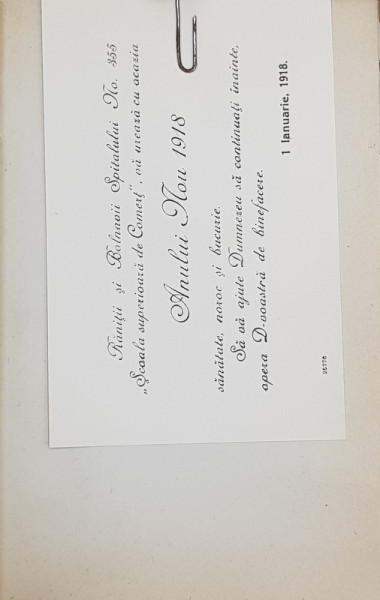 Răniții și Bolnavii Spitalului No. 355
„Școala superioară de Comerț", vă urează cu ocazia
Anului Nou 1918
sănătate, noroc și bucurie.
Să vă ajute Dumnezeu să continuați înainte,
opera D-voastră de binefacere.
1 Ianuarie, 1918.